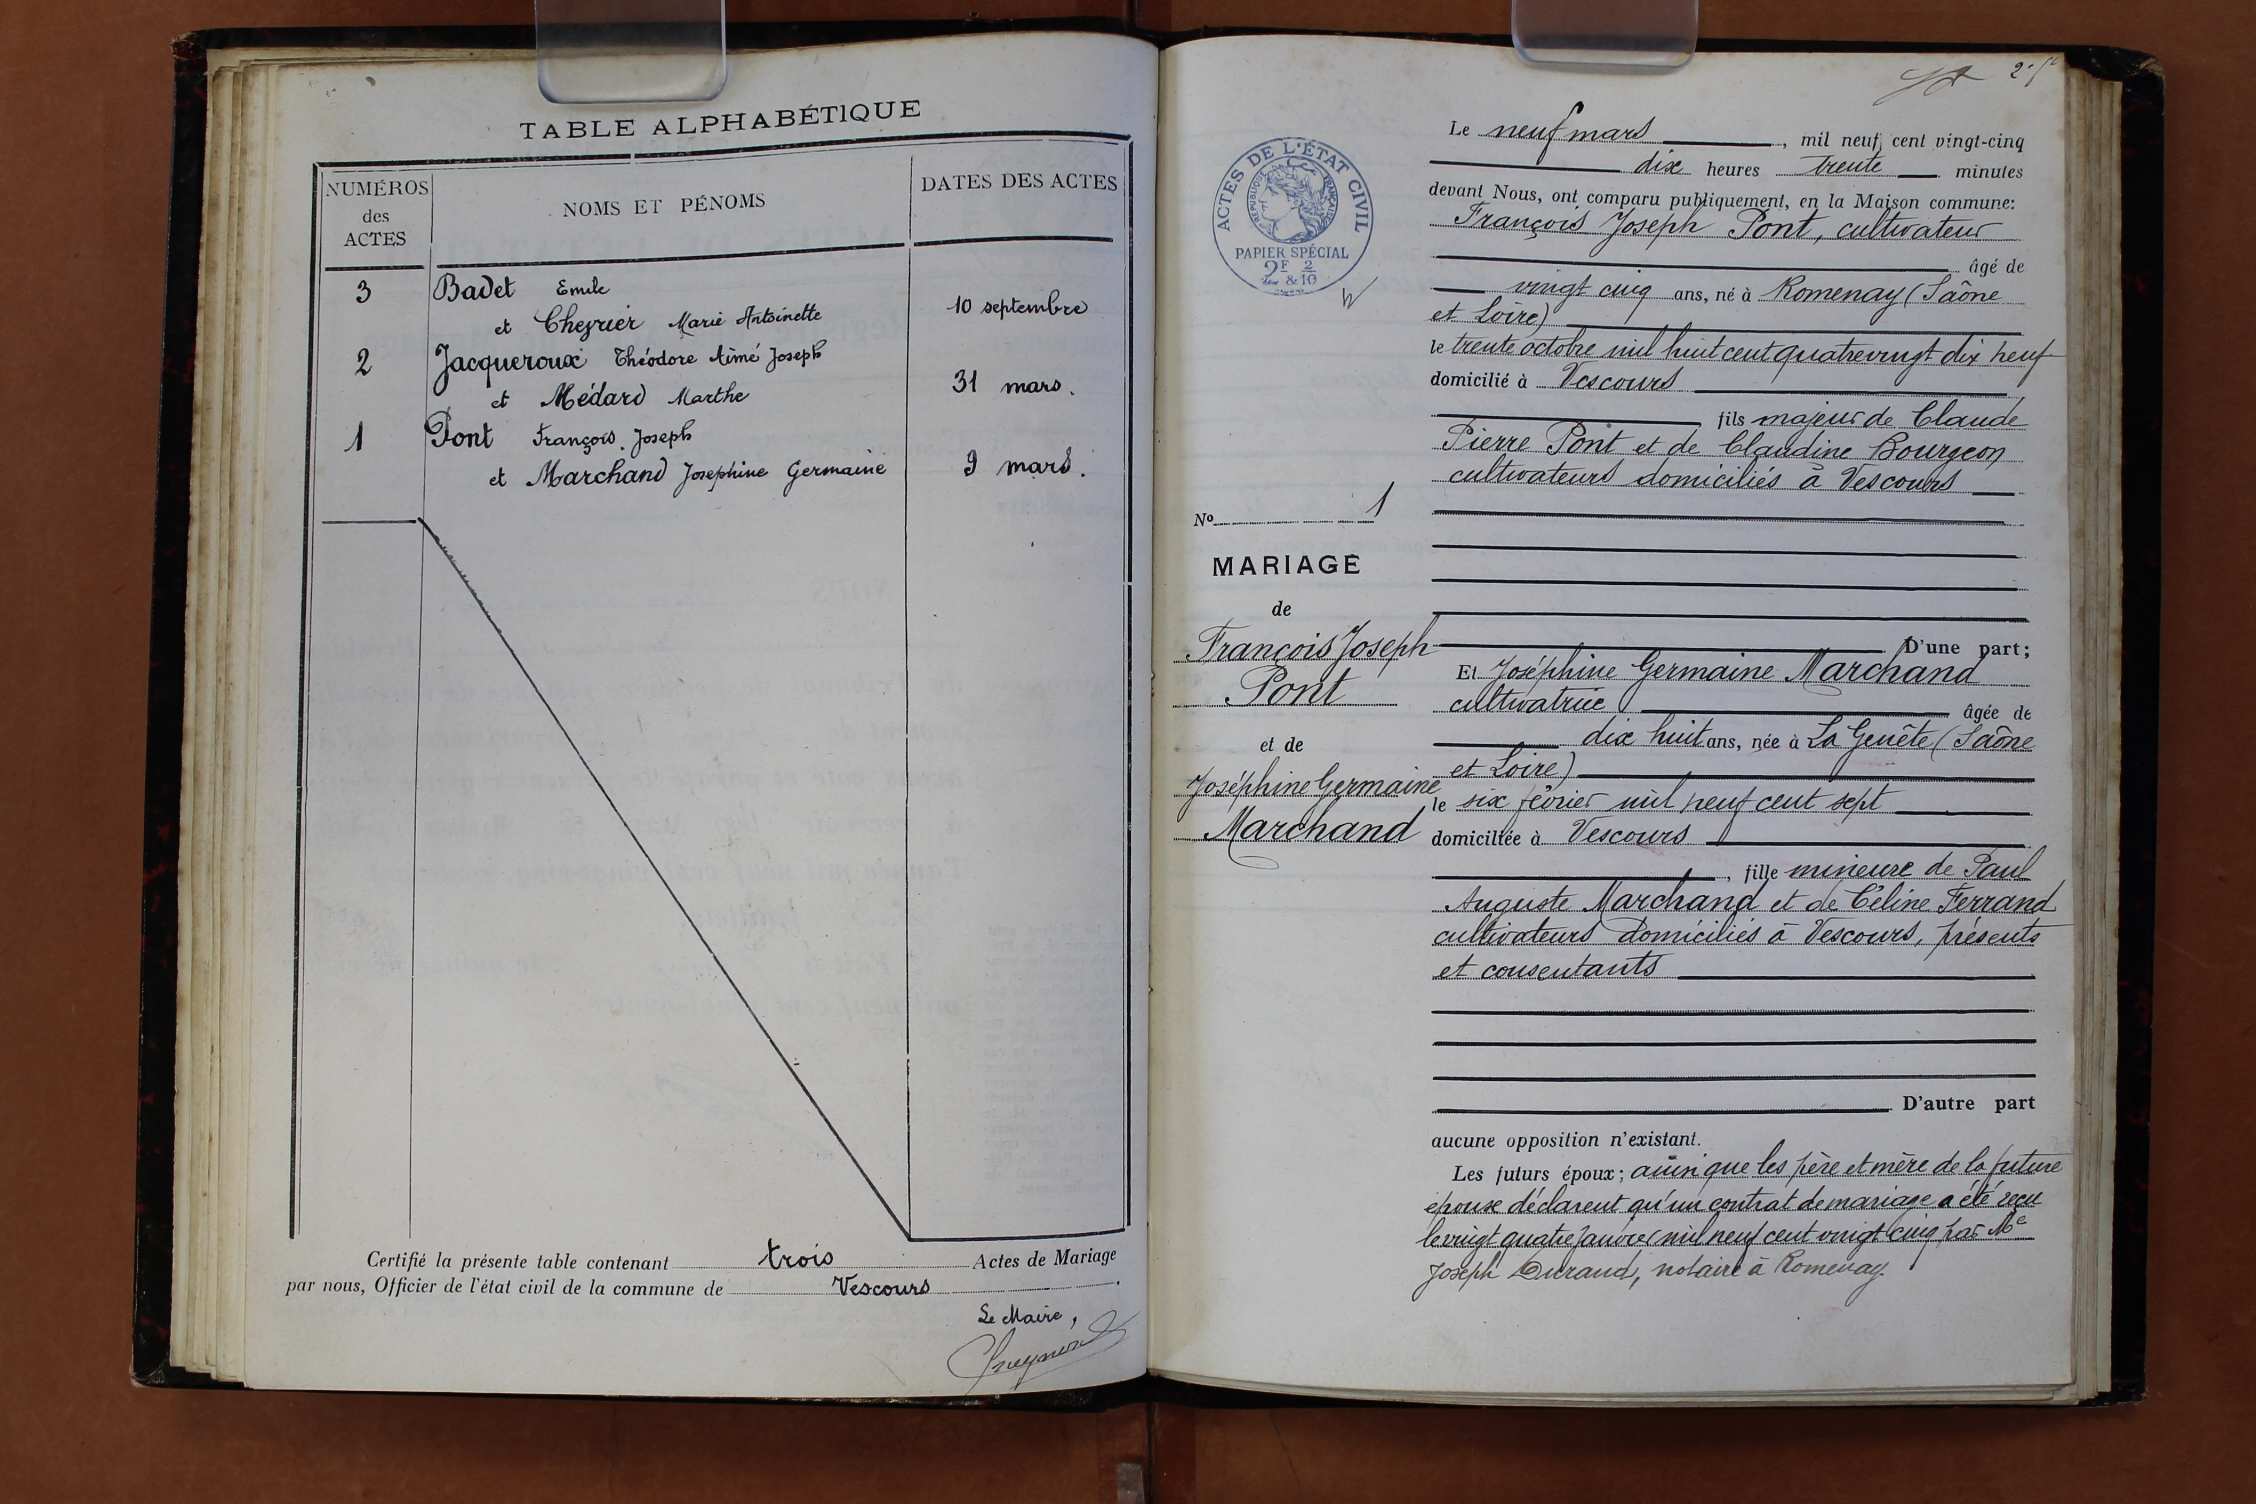 TABLE ALPHABÉTIQUE
NUMÉROS
des
ACTES
NOMS ET PÉNOMS
DATES DES ACTES
3 Badet Emile
et Cheyrier Marie Antoinette 10 septembre
2 Jacqueroux Théodore Aimé Joseph
et Médard Marthe 31 mars.
1 Pont François Joseph
et Marchand Josephine Germaine 9 mars.
Certifié la présente table contenant trois Actes de Mariage
par nous, Officier de l'état civil de la commune de Vescours.
Le Maire,
ACTES DE L'ÉTAT CIVIL
RÉPUBLIQUE FRANÇAISE
PAPIER SPÉCIAL
2F & 2/10
No 1
MARIAGE
de
François Joseph
Pont
et de
Joséphine Germaine
Marchand
Le neuf mars, mil neuf cent vingt-cinq
dix heures trente minutes
devant Nous, ont comparu publiquement, en la Maison commune:
François Joseph Pont, cultivateur
âgé de
vingt cinq ans, né à Romenay (Saône
et Loire)
le trente octobre mil huit cent quatrevingt dix neuf
domicilié à Vescours
fils majeur de Claude
Pierre Pont et de Claudine Bourgeon
cultivateurs domiciliés à Vescours
D'une part;
Et Joséphine Germaine Marchand
cultivatrice âgée de
dix huit ans, née à La Genête (Saône
et Loire)
le six février mil neuf cent sept
domiciliée à Vescours
, fille mineure de Paul
Auguste Marchand et de Céline Ferrand
cultivateurs domiciliés à Vescours, présents
et consentants
D'autre part
aucune opposition n'existant.
Les futurs époux; ainsi que les père et mère de la future
épouse déclarent qu'un contrat de mariage a été reçu
le vingt quatre janvier mil neuf cent vingt cinq par Me
Joseph Durand, notaire à Romenay.